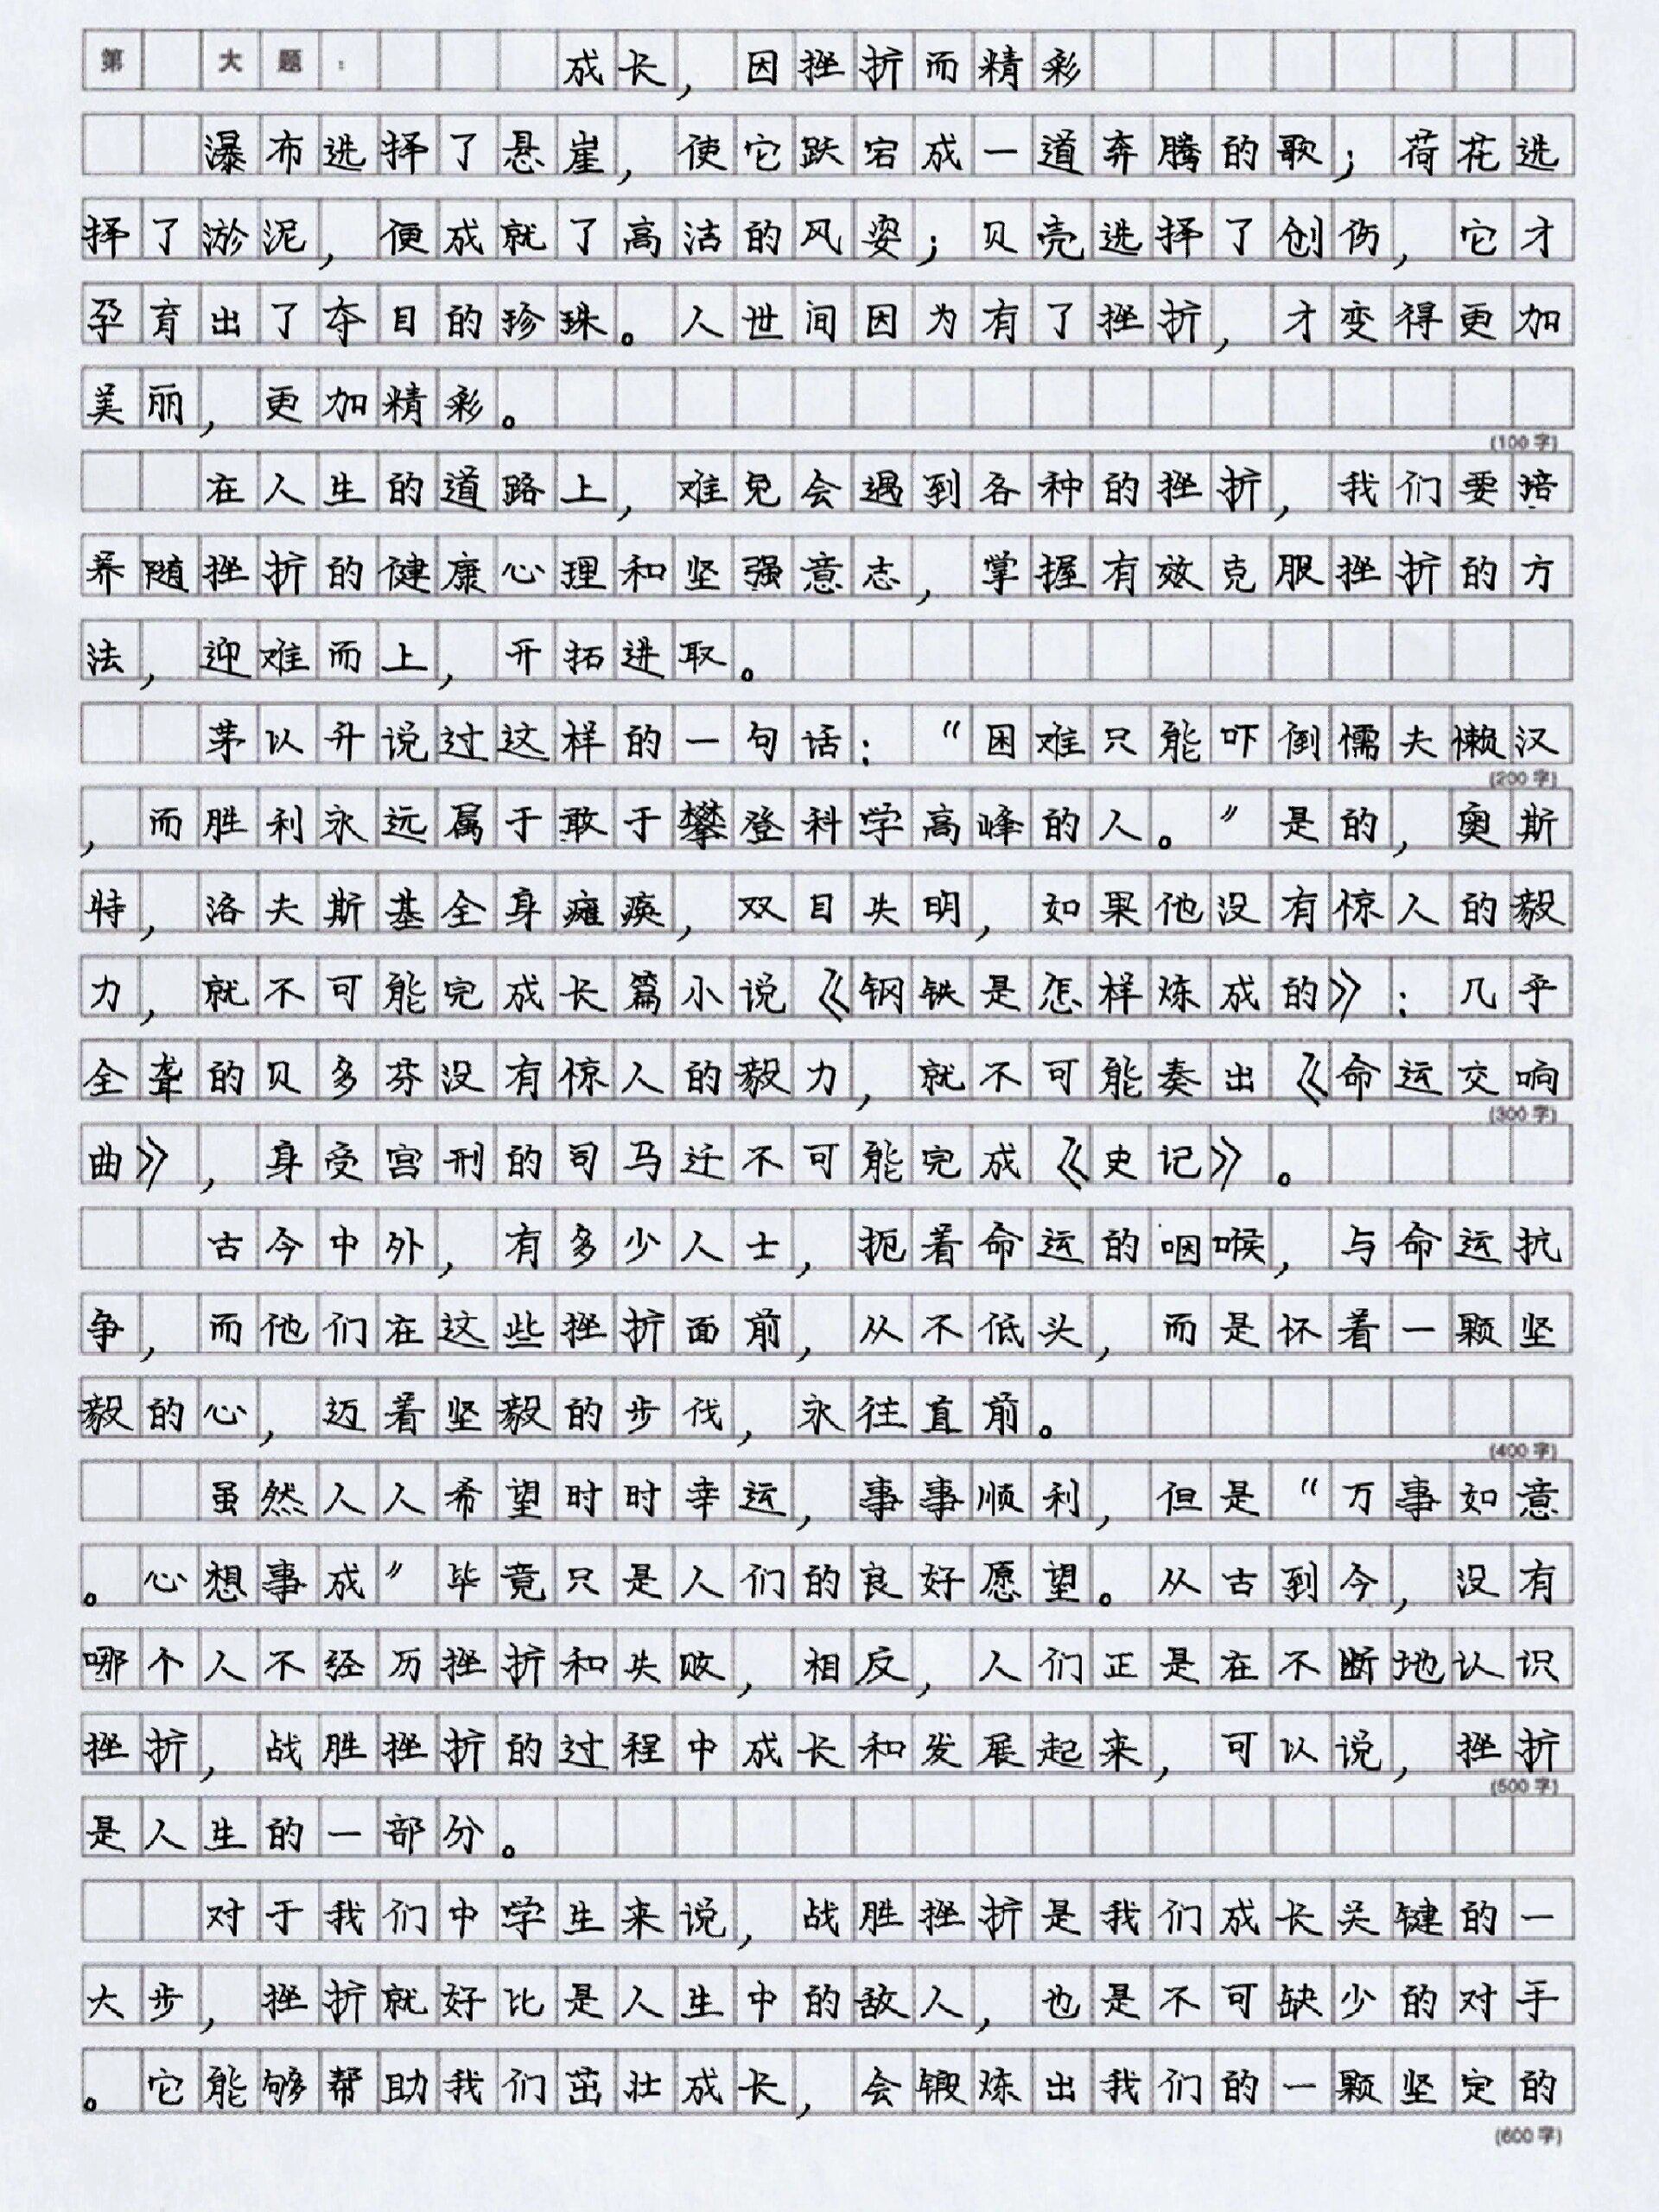 第 大题： 成长，因挫折而精彩
瀑布选择了悬崖，使它跌宕成一道奔腾的歌；荷花选
择了淤泥，便成就了高洁的风姿；贝壳选择了创伤，它才
孕育出了夺目的珍珠。人世间因为有了挫折，才变得更加
美丽，更加精彩。
(100字)
在人生的道路上，难免会遇到各种的挫折，我们要培
养随挫折的健康心理和坚强意志，掌握有效克服挫折的方
法，迎难而上，开拓进取。
茅以升说过这样的一句话：“困难只能吓倒懦夫懒汉
(200字)
，而胜利永远属于敢于攀登科学高峰的人。”是的，奥斯
特，洛夫斯基全身瘫痪，双目失明，如果他没有惊人的毅
力，就不可能完成长篇小说《钢铁是怎样炼成的》：几乎
全聋的贝多芬没有惊人的毅力，就不可能奏出《命运交响
(300字)
曲》，身受宫刑的司马迁不可能完成《史记》。
古今中外，有多少人士，扼着命运的咽喉，与命运抗
争，而他们在这些挫折面前，从不低头，而是怀着一颗坚
毅的心，迈着坚毅的步伐，永往直前。
(400字)
虽然人人希望时时幸运，事事顺利，但是“万事如意
。心想事成”毕竟只是人们的良好愿望。从古到今，没有
哪个人不经历挫折和失败，相反，人们正是在不断地认识
挫折，战胜挫折的过程中成长和发展起来，可以说，挫折
(500字)
是人生的一部分。
对于我们中学生来说，战胜挫折是我们成长关键的一
大步，挫折就好比是人生中的敌人，也是不可缺少的对手
。它能够帮助我们茁壮成长，会锻炼出我们的一颗坚定的
(600字)